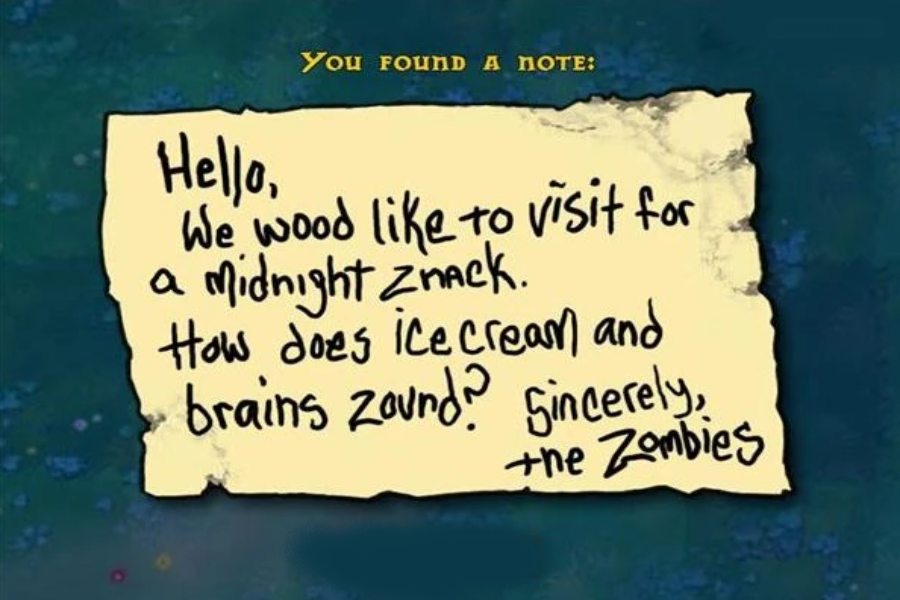 You found a note:
Hello,
We wood like to visit for
a midnight znack.
How does icecream and
brains zound?
Sincerely,
the Zombies